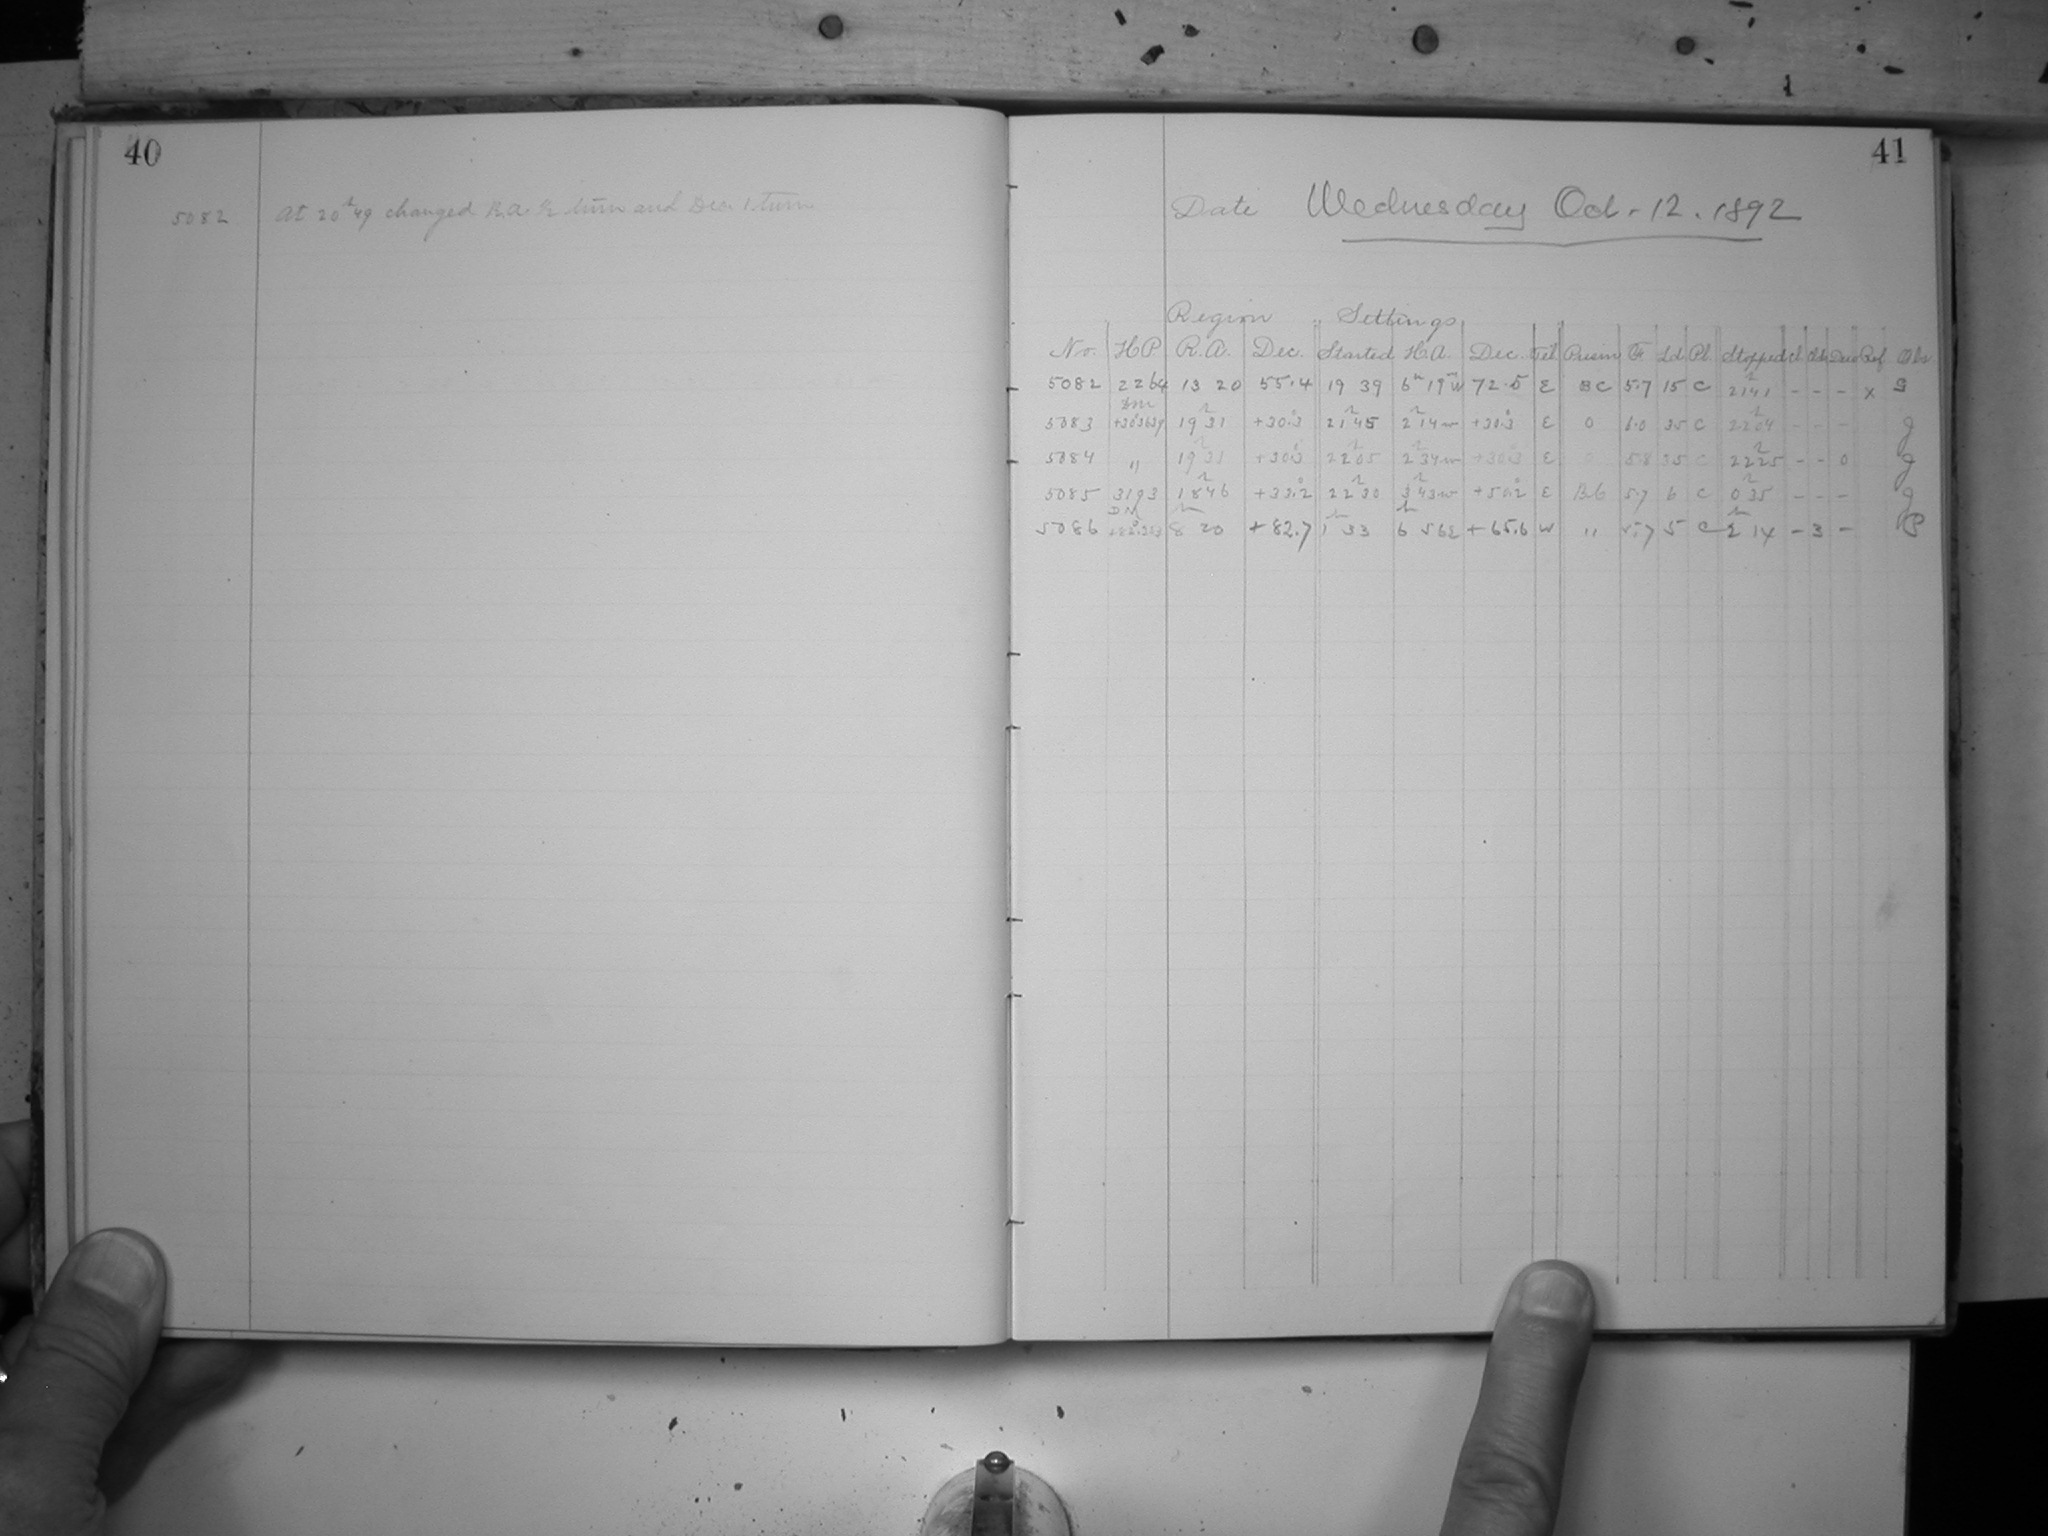 40
5082 At 20h 49 changed R.A. ½ turn and Dec 1 turn
41
Date Wednesday Oct. 12. 1892
Region Settings
No. HP R.A. Dec. Started H.A. Dec. Tel Prism Ld Pl Stopped Cl Ref Obs
5082 2264 13 20 55.4 19 39 6h 19m W 72.5 E BC 5.7 15 C 21h 41 - - - x G
DM
5083 19h 31 +30.3 21h 45 2h 14 w +30.3 E 0 6.0 35 C 22h 04 - - - J
5084 " 19h 31 +30.3 22h 05 2h 34 w +30.3 E 0 5.8 35 C 22h 25 - - 0 J
5085 3193 18h 46 +33.2 22h 30 3h 43 w +50.2 E 5.7 6 C 0h 35 - - - J
DM
5086 8h 20 +82.7 1h 33 6h 56 E +65.6 W " 5.7 5 C 2h 14 - 3 - P